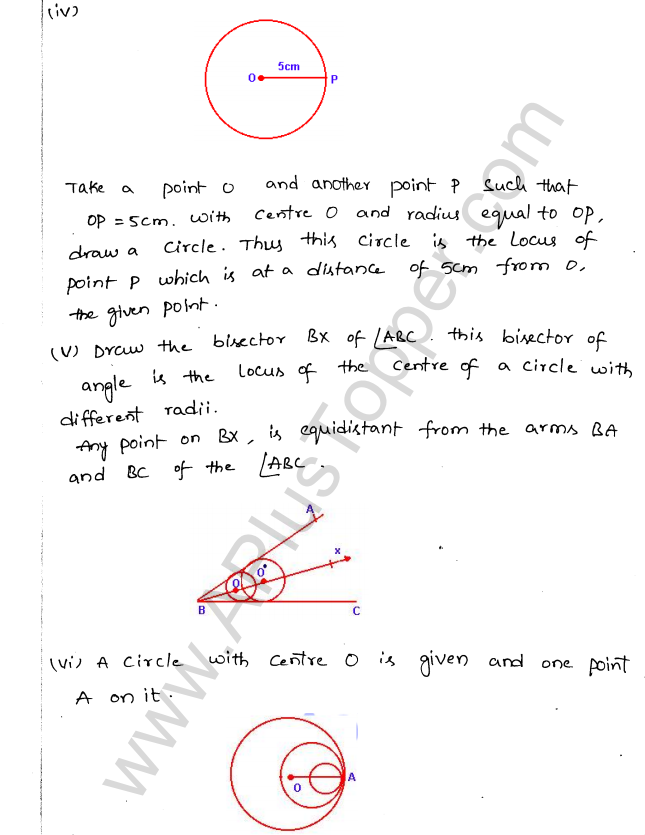 (iv)
5cm
O P
Take a point O and another point P such that
OP = 5cm. with centre O and radius equal to OP,
draw a circle. Thus this circle is the Locus of
point P which is at a distance of 5cm from O,
the given point.
(V) Draw the bisector BX of ∠ABC. this bisector of
angle is the Locus of the centre of a circle with
different radii.
Any point on BX, is equidistant from the arms BA
and BC of the ∠ABC.
A
x
O O'
B C
(Vi) A Circle with centre O is given and one point
A on it.
O A
www.APlusTopper.com